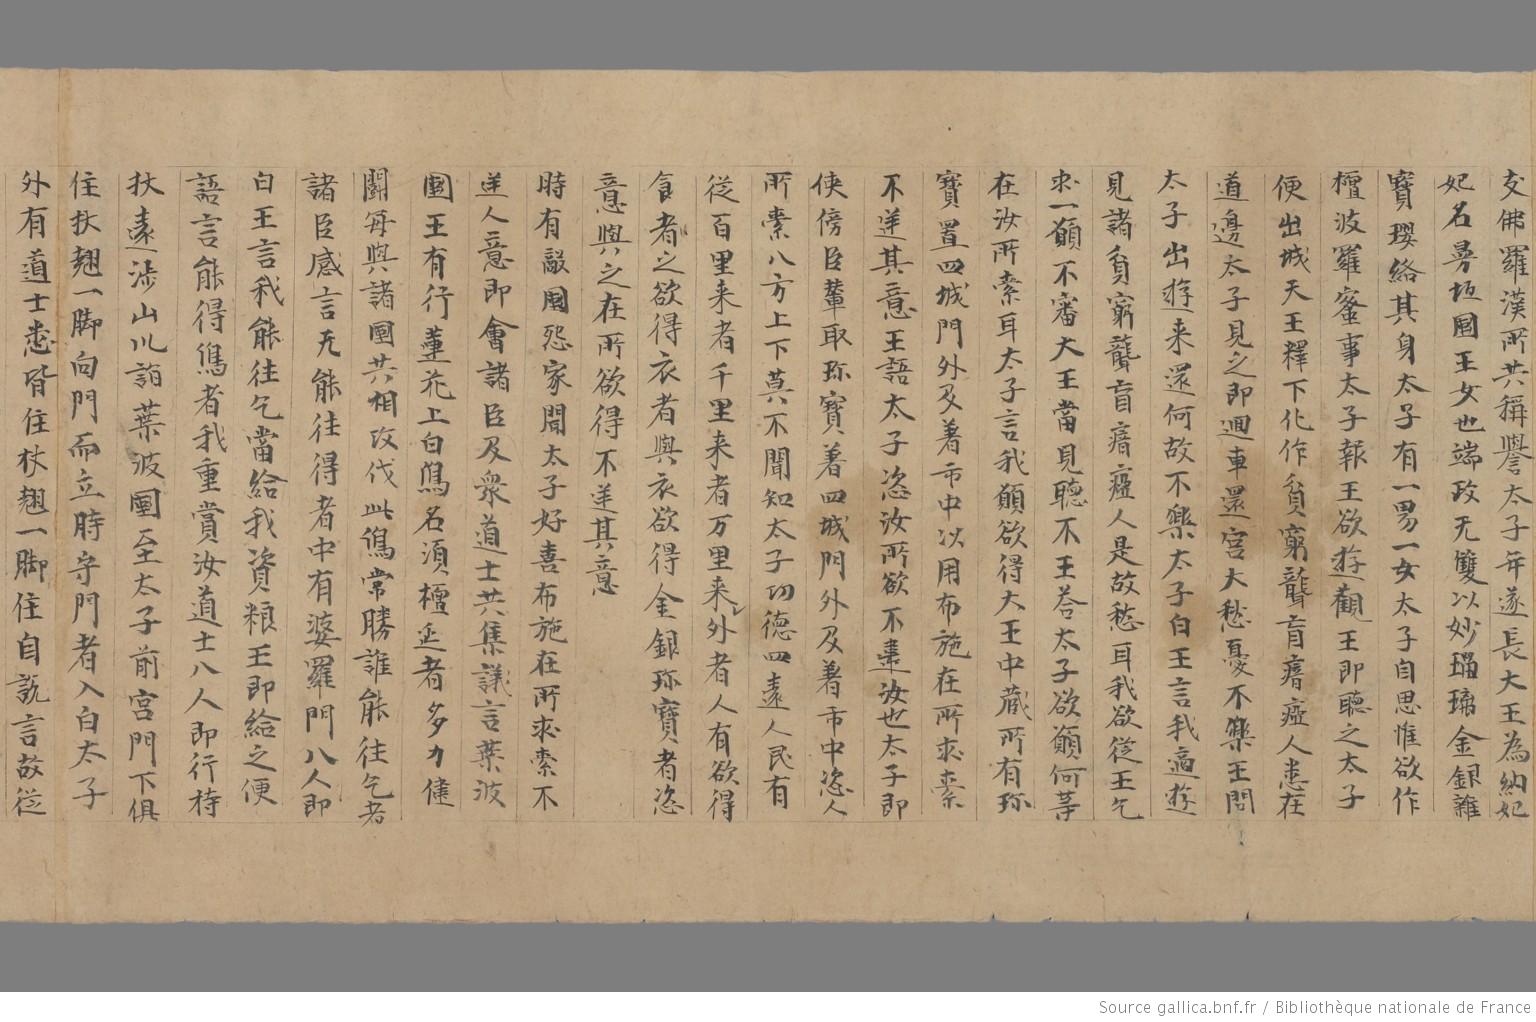 支佛羅漢所共稱譽太子年遂長大王為納妃
妃名曼坻國王女也端政无雙以妙瑠璃金銀雜
寶瓔絡其身太子有一男一女太子自思惟欲作
檀波羅蜜事太子報王欲遊觀王即聽之太子
便出城天王釋下化作貧窮聾盲瘖瘂人悉在
道邊太子見之即迴車還宮大愁憂不樂王問
太子出遊来還何故不樂太子白王言我適遊
見諸貧窮聾盲瘖瘂人是故愁耳我欲從王乞
求一願不審大王當見聽不王荅太子欲願何等
在汝所索耳太子言我願欲得大王中藏所有珎
寶置四城門外及著市中以用布施在所求索
不逆其意王語太子恣汝所欲不違汝也太子即
使傍臣輦取珎寶著四城門外及著市中恣人
所索八方上下莫不聞知太子功德四遠人民有
從百里来者千里来者万里来外者人有欲得
食者之欲得衣者與衣欲得金銀珎寶者恣
意與之在所欲得不逆其意
時有敵國怨家聞太子好喜布施在所求索不
逆人意即會諸臣及衆道士共集議言葉波
國王有行蓮花上白鳥名須檀延者多力健
鬪每與諸國共相攻伐此鳥常勝誰能往乞者
諸臣感言无能往得者中有婆羅門八人即
白王言我能往乞當給我資粮王即給之便
語言能得鳥者我重賞汝道士八人即行持
杖遠涉山川詣葉波國至太子前宮門下俱
住扙翹一脚向門而立時守門者入白太子
外有道士悉皆住杖翹一脚住自說言故從
Source gallica.bnf.fr / Bibliothèque nationale de France